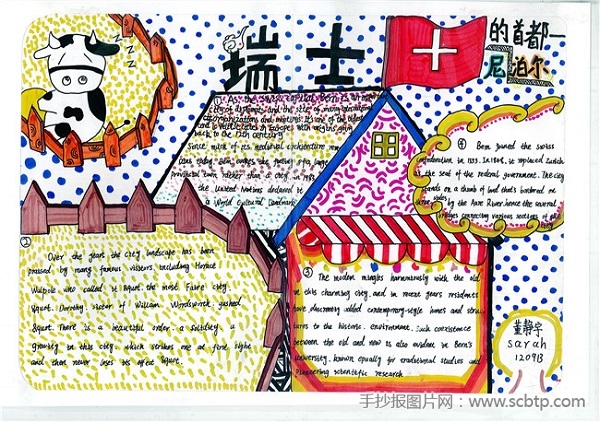 瑞士
的首都一
尼泊尔
① As the Swiss capital Bern is an
city of diplomats and the site of many
organizations and meetings. It's one of the oldest
back to the 12th century
Since much of its medieval architecture
provincial town rather than a city. In 1983,
the United Nations declared it
a World Cultural Landmark
④ Bern joined the swiss
confederation in 1353. In 1848, it replaced Zurich
as the seat of the federal government. The city
stands on a thumb of land that's bordered on
sides
by the Aare River, hence the several
bridges connecting various sections of the
city
②
Over the years the city landscape has been
praised by many famous visitors, including Horace
Walpole who called it &quot. the most Faire city
&quot. Dorothy, sister of William Wordsworth, gushed
&quot. There is a beautiful order, a solidity, a
gravity in this city, which strikes one at first sight
and then never loses its effect &quot.
③ The modern mingles harmoniously with the old
in this charming city, and in recent years residents
have discreetly added contemporary-style homes and struc
tures to the historic environment. Such coexistence
between the old and new is also evident in Bern's
University, known equally for traditional studies and
pioneering scientific research.
董静宇
sarah
120913
手抄报图片网:www.scbtp.com